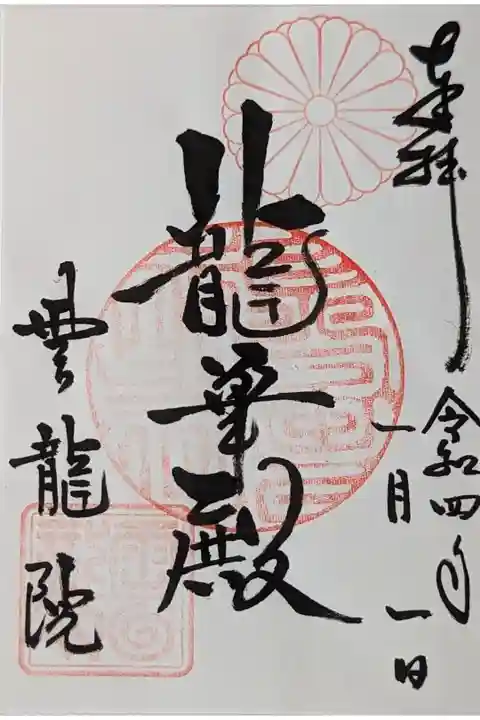 奉拝
令和四年
一月一日
龍華殿
雲龍院